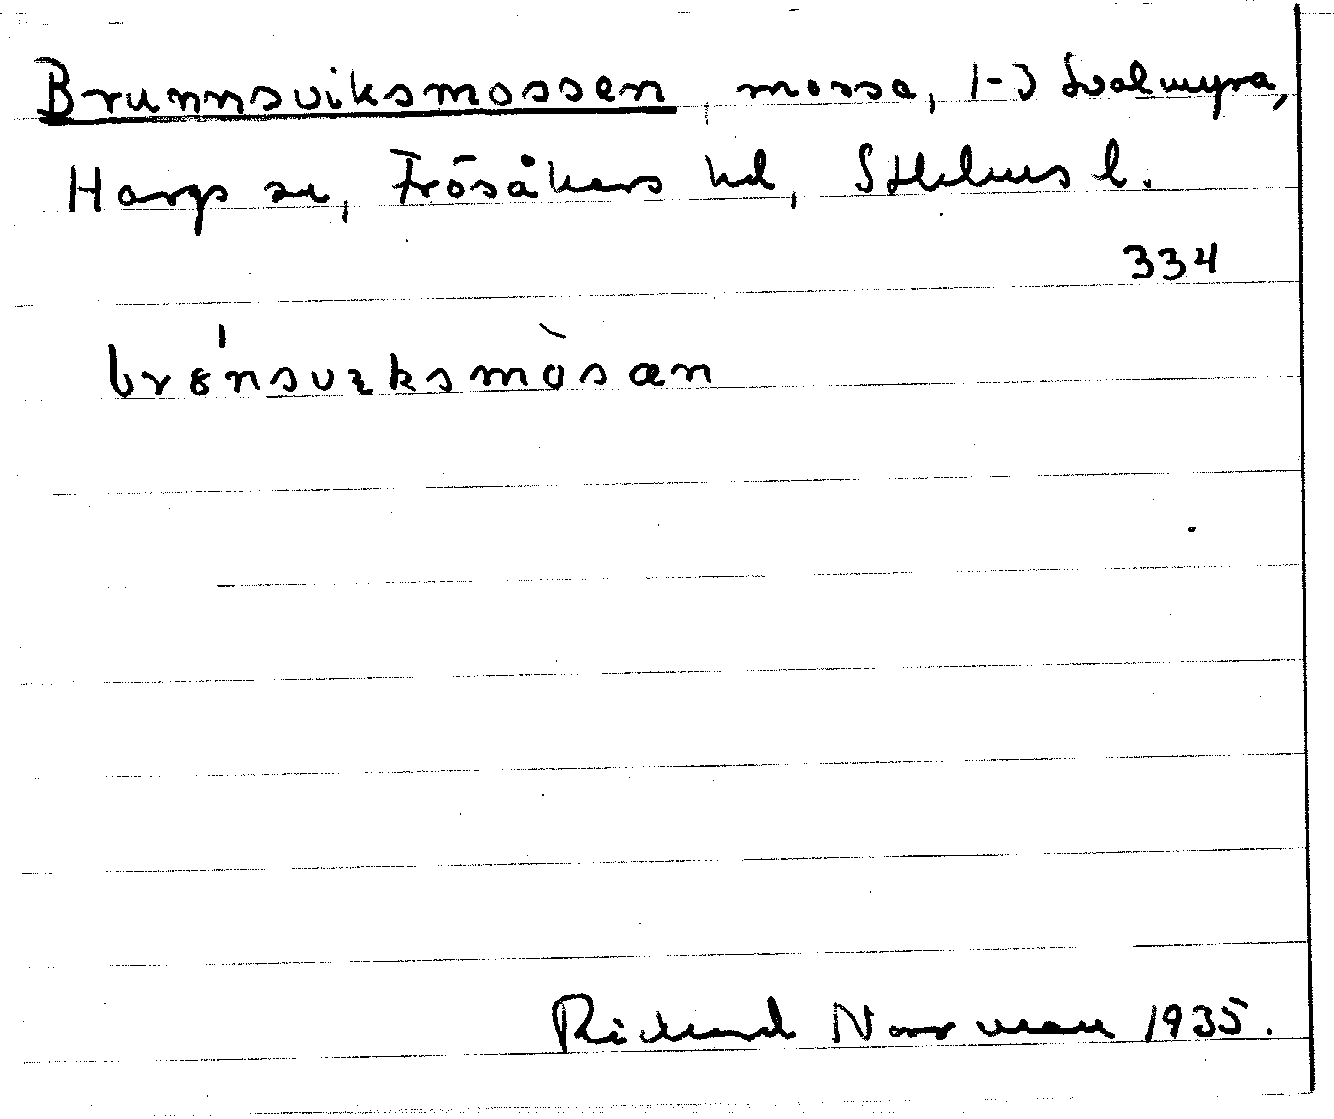 Brunnsviksmossen, mossa, 1-3 Svalmyra,
Hargs sn, Frösåkers hd, Sthlms l.
334
brønsvıksmòsan
Richard Norrman 1935.